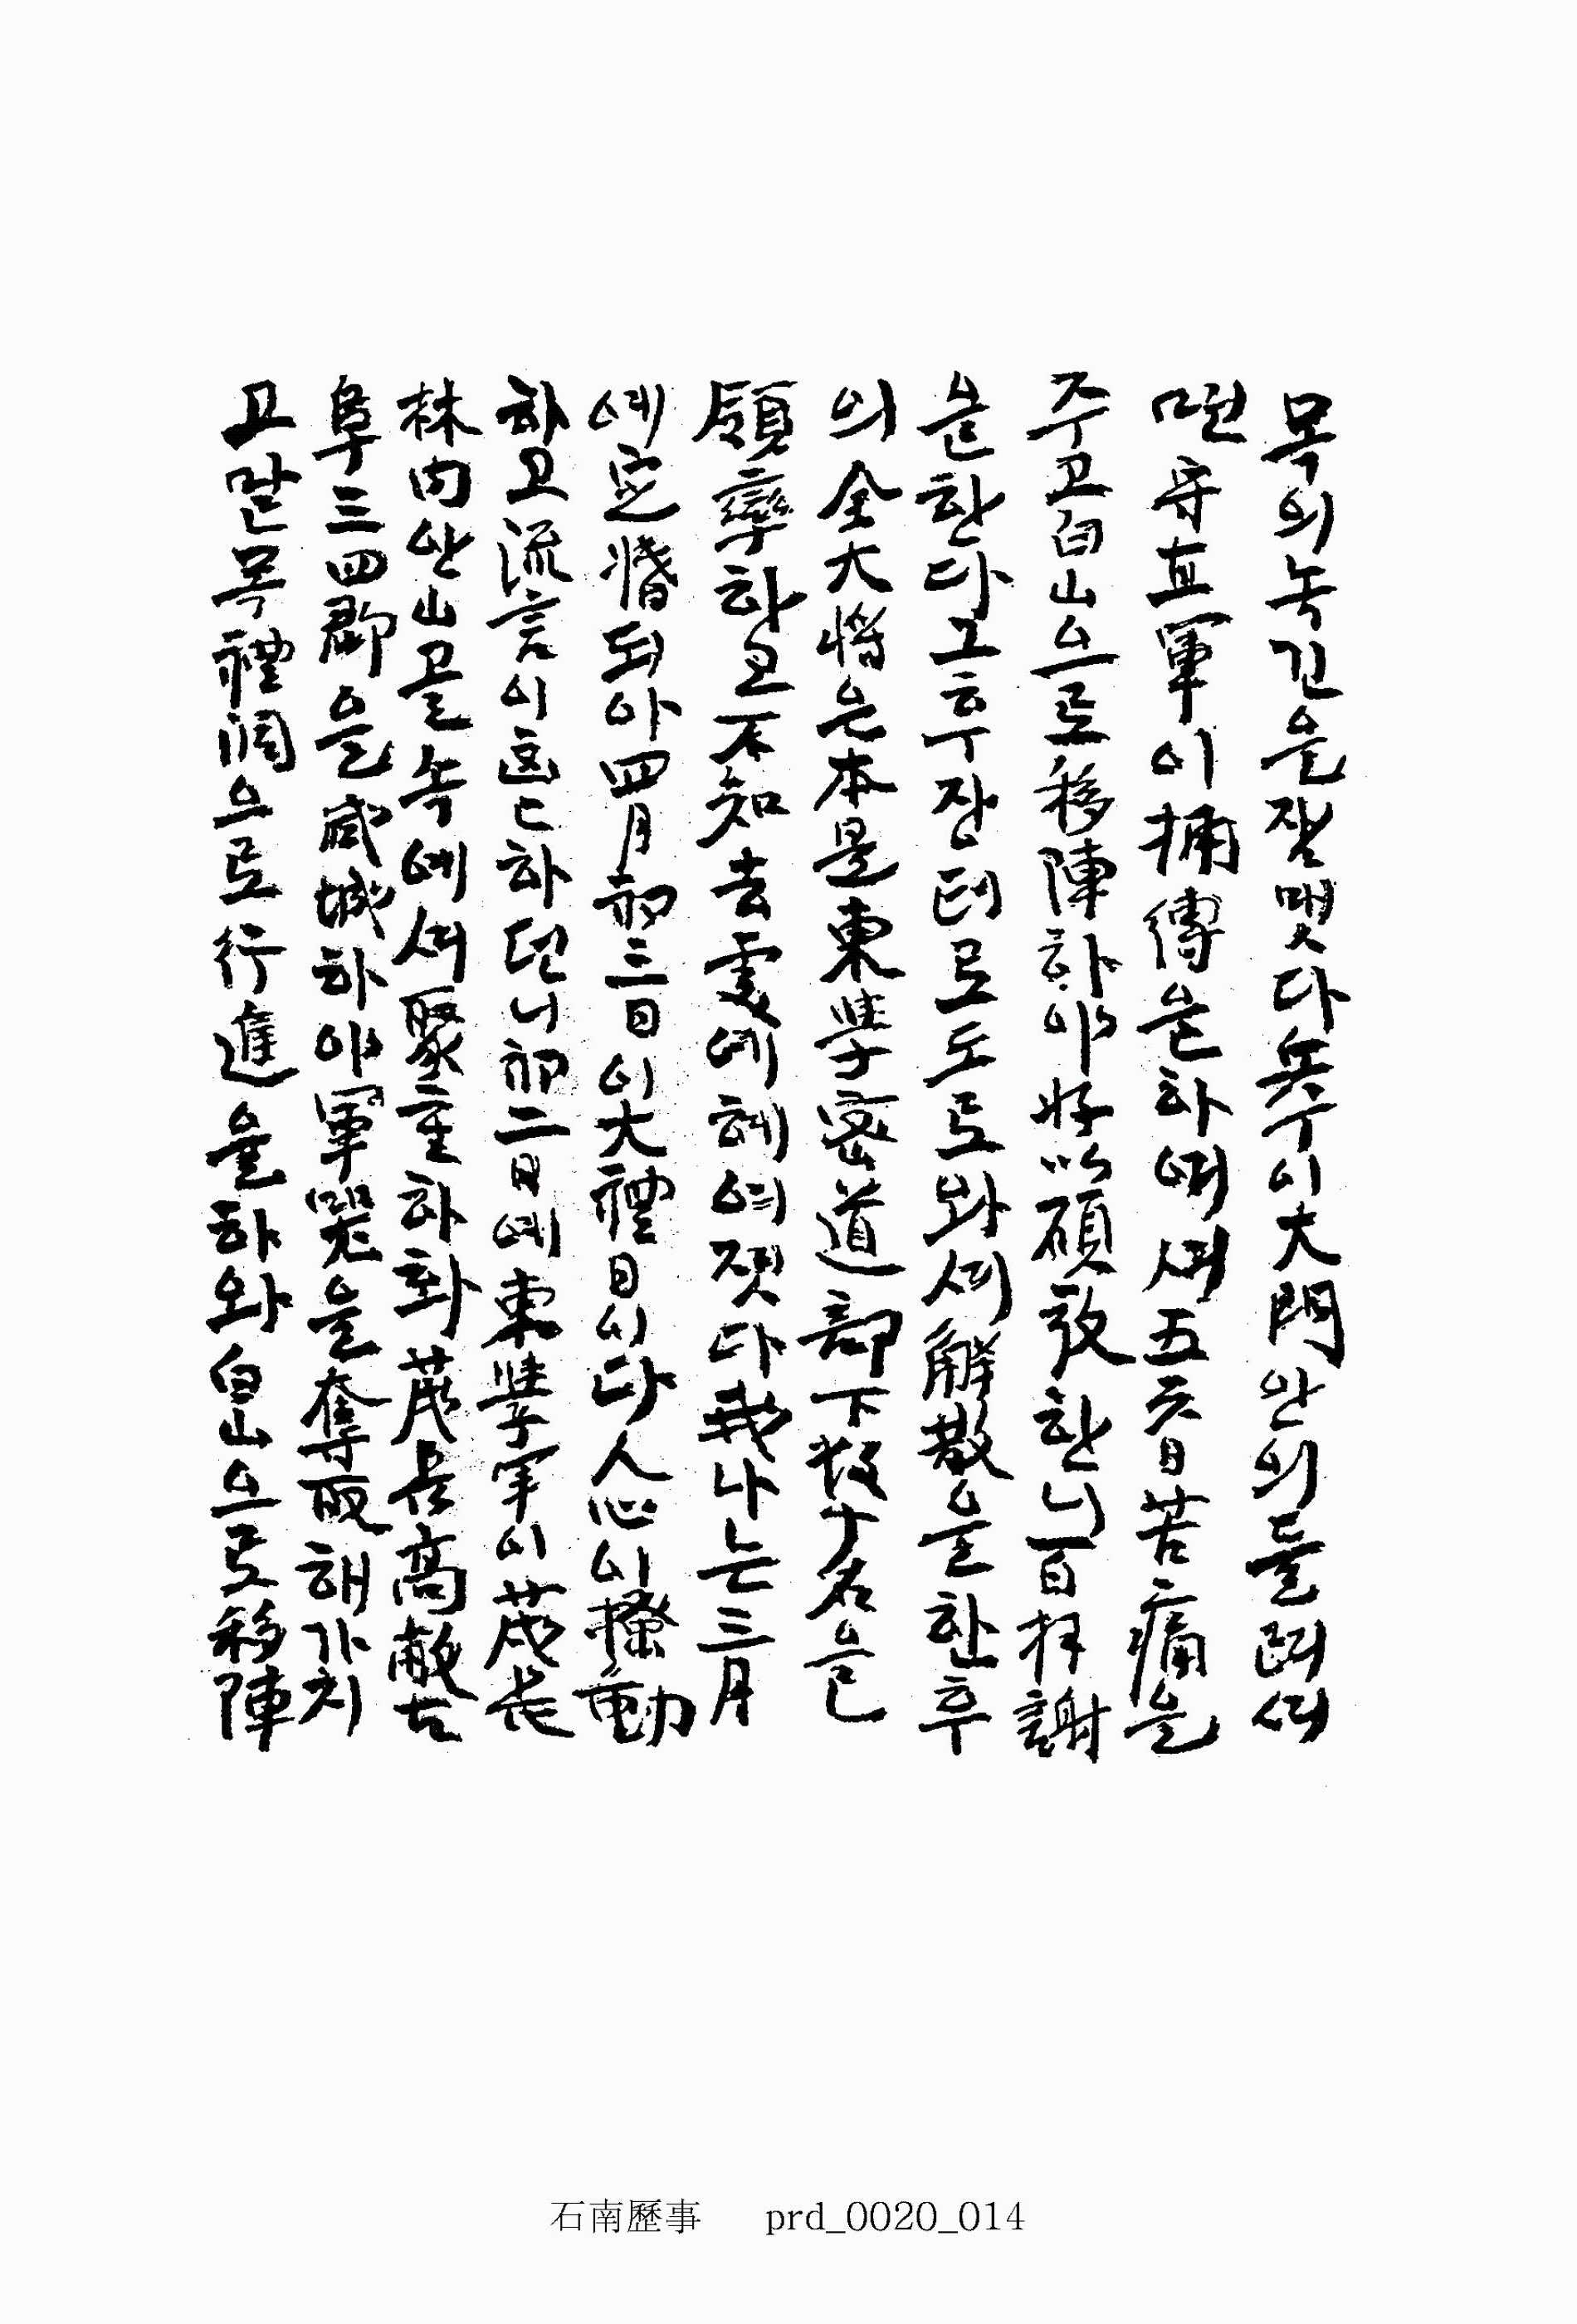 목의 녹긴을 잠맷다 兵수이 大門 안의 들려서
면 守直軍이 捕縛을 하며셔 五六日 苦痛을
주고 白山으로 移陣하야 好以 한니 百拜謝
을 한다 그 후 장터로 도로 와셔 解散을 한 후
의 全大將은 本是 東學密道 部下 數十名을
領率하고 不知去處에 헤여젓다 我나는 三月
에 定婚되야 四月 初三日이 大禮日이다 人心이 搔動
하고 流言이 하던니 初二日에 東學軍이 茂長
林內 안山골 녹에셔 聚重하화 茂長 高敞 古
阜 三四郡을 咸城하야 軍器을 奪取해가지
고 말목 禮洞으로 行進을 하와 白山으로 移陣
石南歷事 prd_0020_014